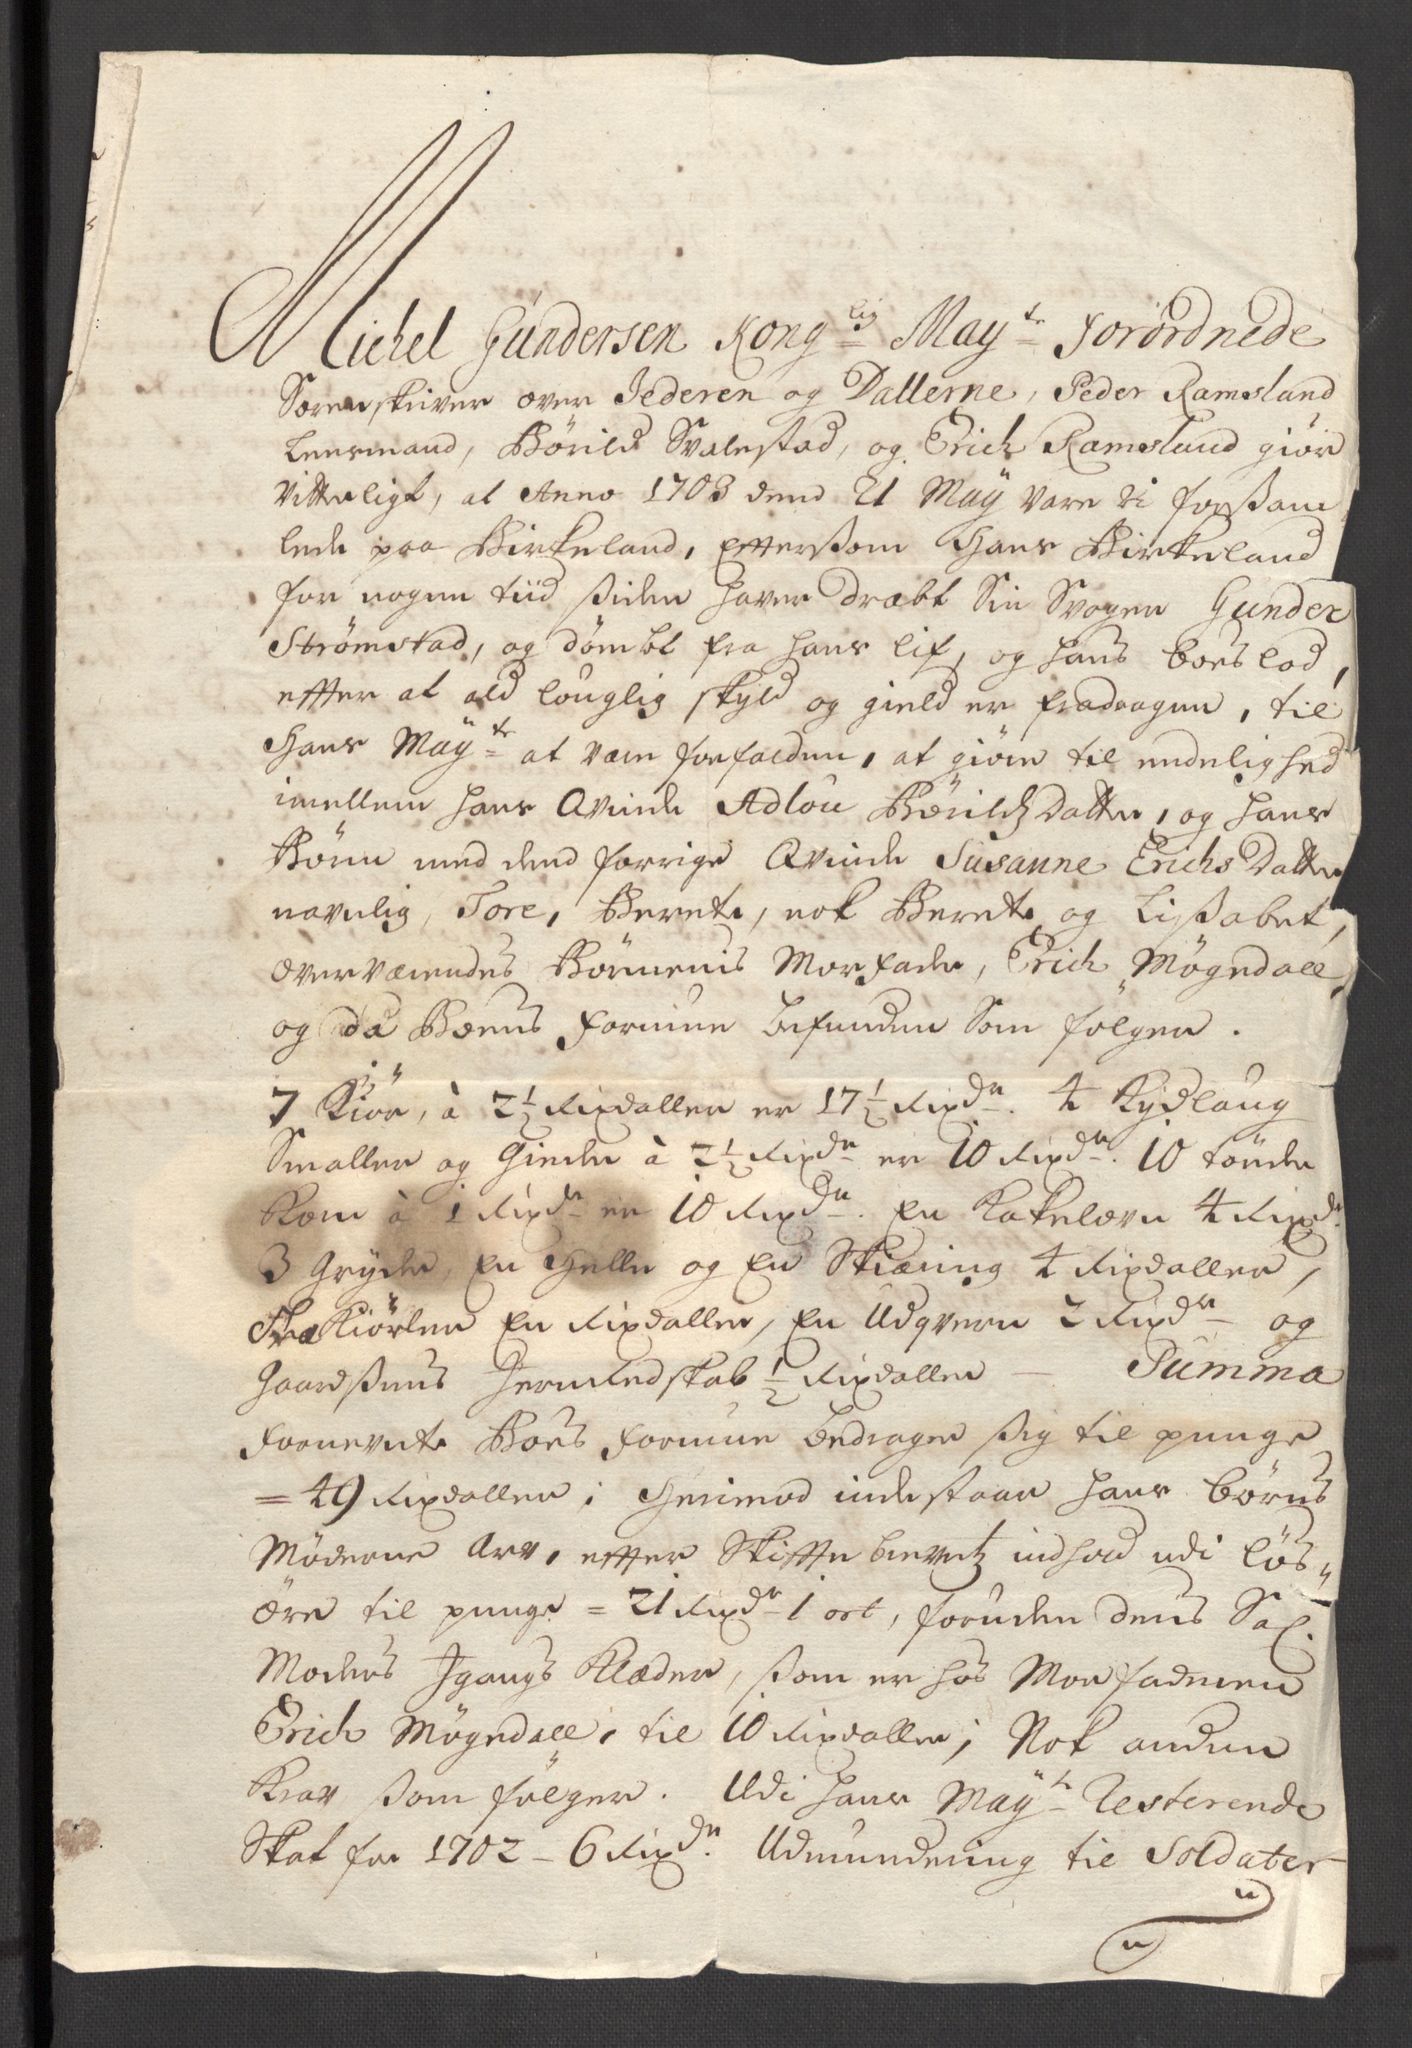 Michel Gundersen Kong lig May te forordnede
Sorenskriver over Jederen og Dallerne, Peder Ramsland
Lensmand, Børild Svalestad, og Erich Ramsland giør
Vitterligt, at Anno 1703 dend 21 May vare vi forsam
lede paa Birkeland, Efftersom Hans Birkeland
for nogen tiid siden haver dræbt Sin Svoger Gunder
Strømstad, og dømbt fra hans lif, og hans boes lod,
effter at ald louglig skyld og gield er fradragen, til
Hans May te at være forfalden, at giøre til endelighed
imellem hans Qvinde Adlou Børildsdatter, og hans
Børn med dend forrige Qvinde Susanne Erichs Datter
navnlig, Tore, Berete, nok Berete og Lisabet,
overværendes Børnenis Morfader, Erich Møgedall,
og da Boens formue befunden Som følger.
7 Kiør, à 2½ Rixdaller er 17½ Rixdr. 4 Kydlaug
Smaller og Gieder à 2½ Rixdr er 10 Rixdr. 10 tønder
Korn à 1 Rixdr er 10 Rixdr. En Kakelovn 4 Rixdr.
3 Gryder, En Helle og En Skiæring 4 Rixdaller,
Træ Kiørler En Rixdaller, En Udqvern 2 Rixdr og
Gaardsens Jernredskab ½ Rixdaller — Summa
fornevnte Boes formue bedrager sig til penge
= 49 Rixdaller; Herimod indestaar hans børns
Møderne Arv, effter Skiffte brevetz indhold udi løs-
øre til penge = 21 Rixdr 1 ort, foruden deris Sal.
Moders Igangs Klæder, som er hos Morfaderen
Erich Møgedall, til 10 Rixdaller; Nok anden
Krav som følger. Udi hans May ts Resterende
Skat for 1702 - 6 Rixdr. Udmundering til Soldater